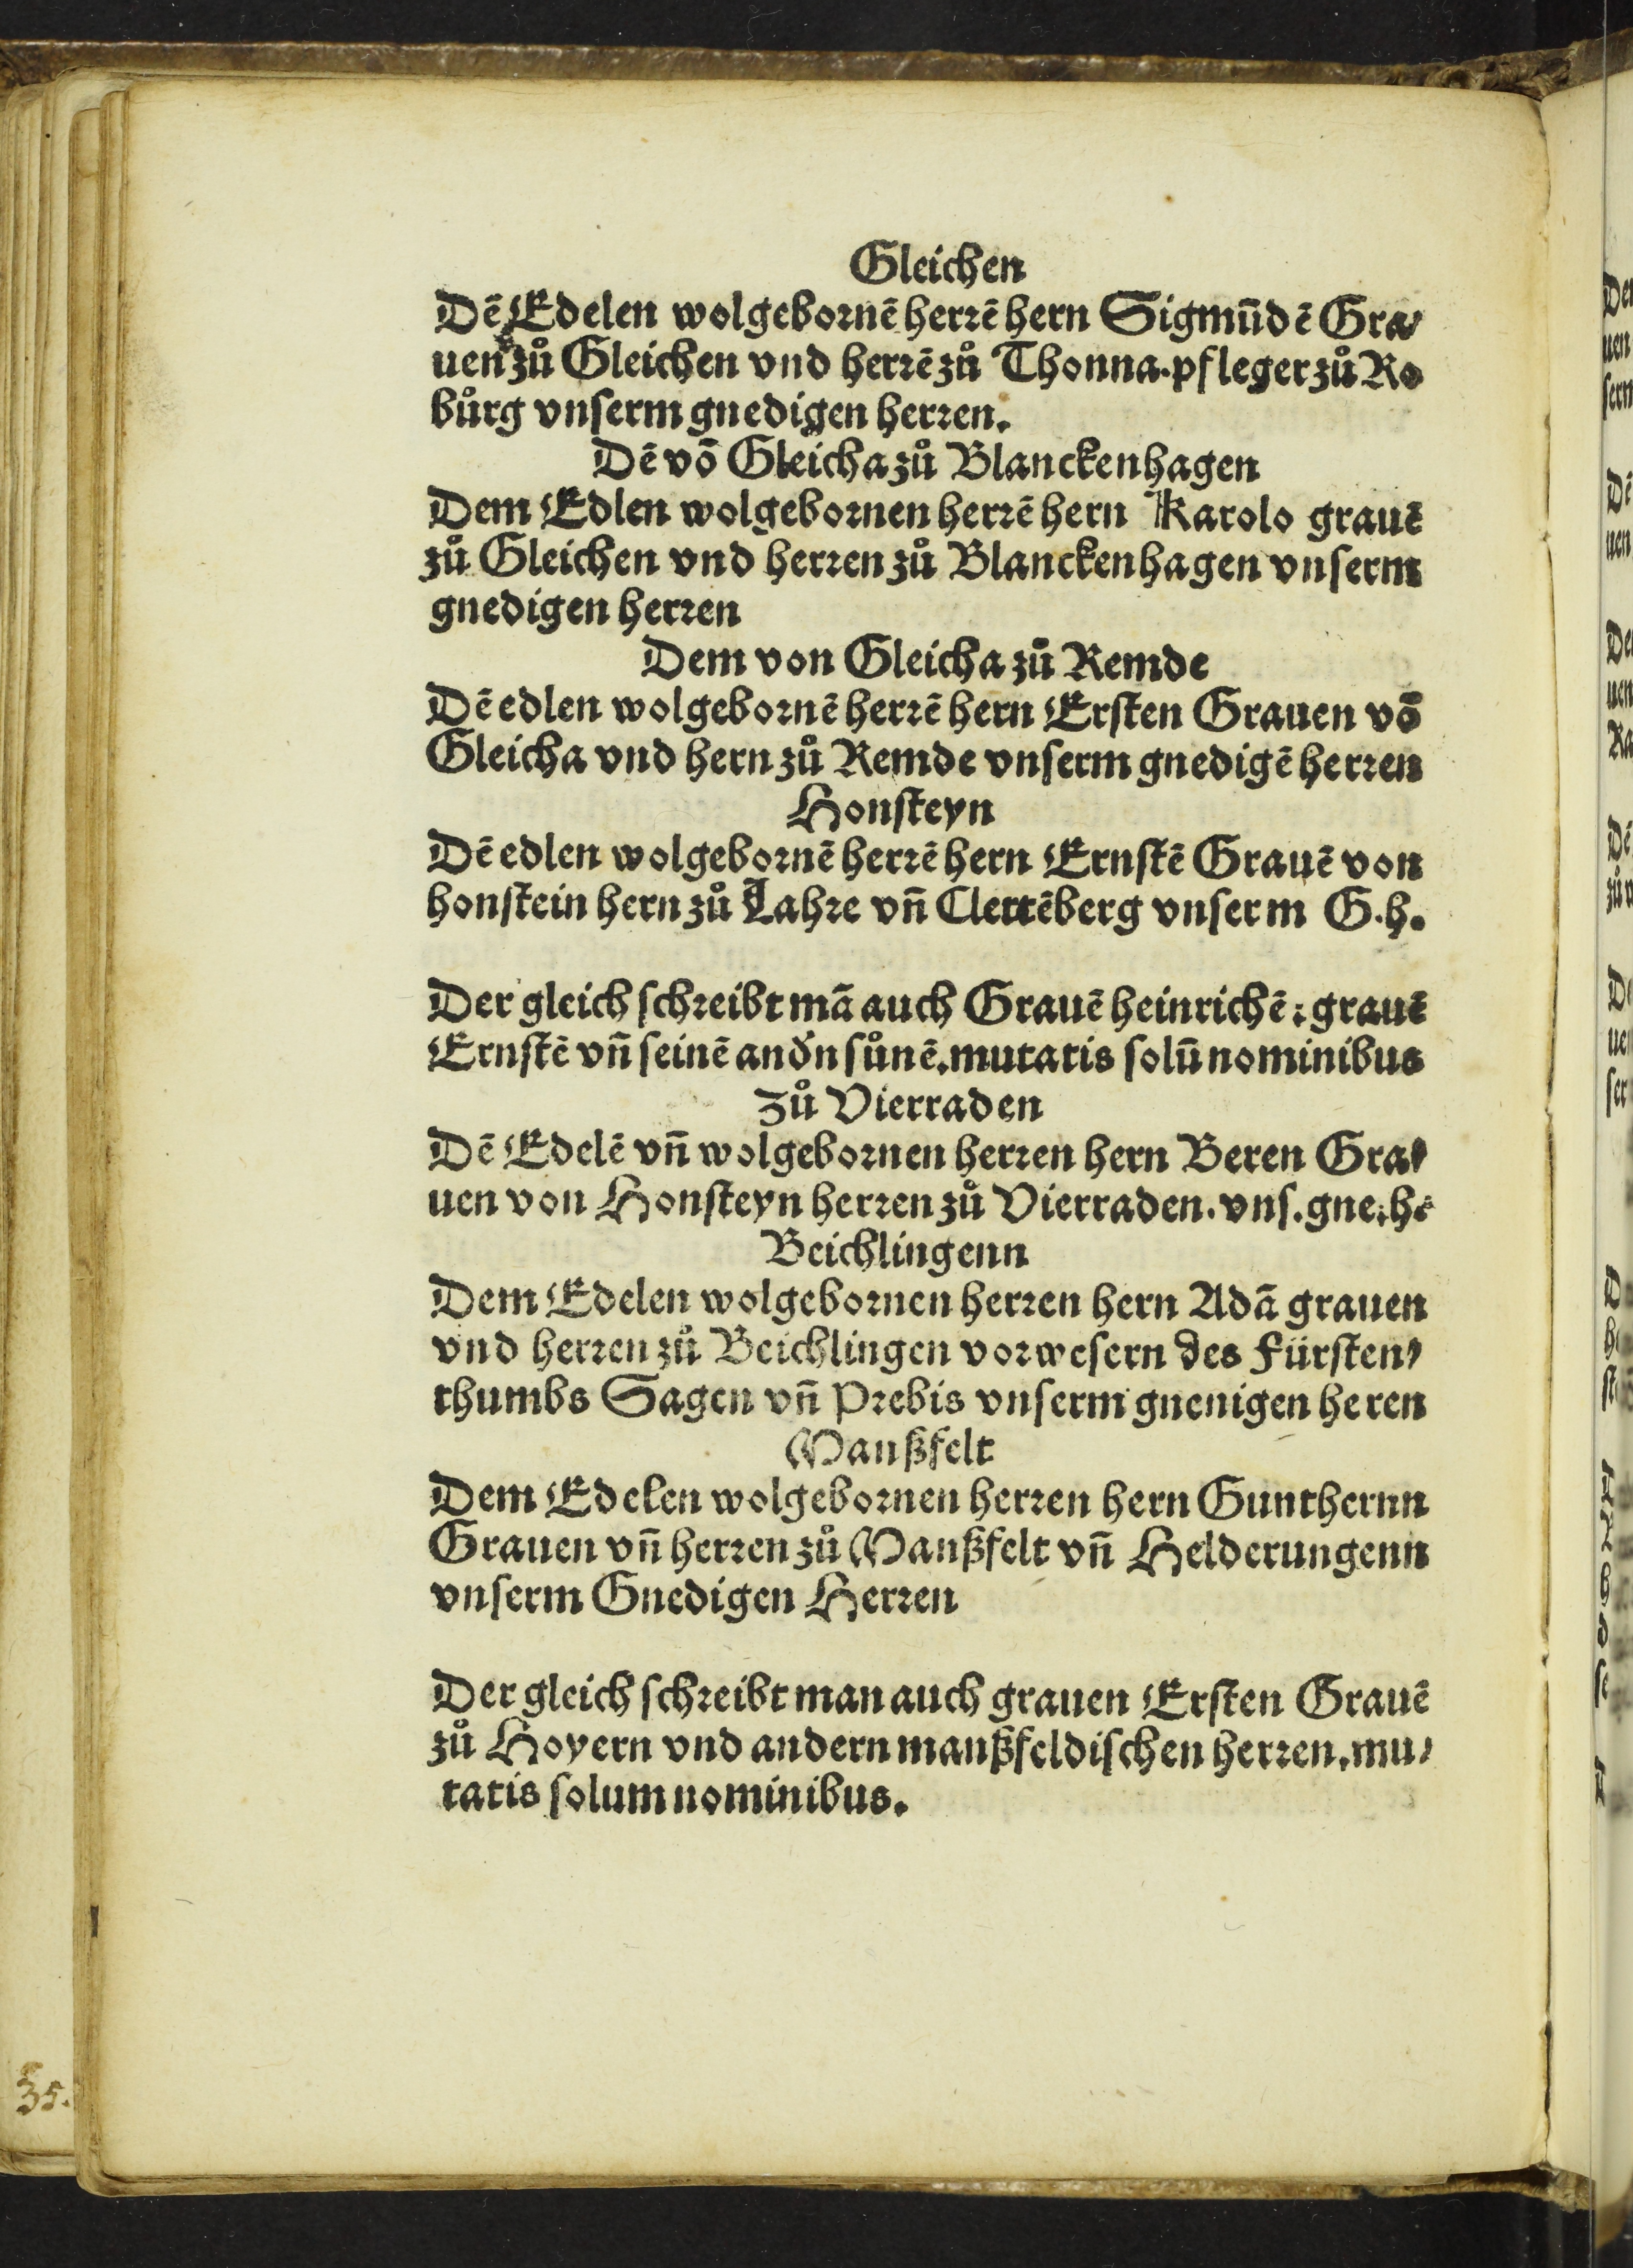 Gleichen
Dē Edelen wolgebornē herrē hern Sigmūdē Gra⸗
uen zů Gleichen vnd herrē zů Thonna. pfleger zů Ro
bůrg vnserm gnedigen herren.
Dē vō Gleicha zů Blanckenhagen
Dem Edlen wolgebornen herrē hern Karolo grauē
zů Gleichen vnd herren zů Blanckenhagen vnserm
gnedigen herren
Dem von Gleicha zů Remde
Dē edlen wolgebornē herrē hern Ersten Grauen vō
Gleicha vnd hern zů Remde vnserm gnedigē herren
Honsteyn
Dē edlen wolgebornē herrē hern Ernstē Grauē von
honstein hern zů Lahre vñ Clettēberg vnserm G. h.
Der gleich schreibt mā auch Grauē heinrichē: grauē
Ernstē vñ seinē andn sůnē. mutatis solū nominibus
Zů Vierraden
Dē Edelē vñ wolgebornen herren hern Beren Gra⸗
uen von Honsteyn herren zů Vierraden. vns. gne. h.
Beichlingenn
Dem Edelen wolgebornen herren hern Adā grauen
vnd herren zů Beichlingen vorwesern des Fürsten⸗
thumbs Sagen vñ Prebis vnserm gnenigen heren
Manßfelt
Dem Edelen wolgebornen herren hern Gunthernn
Grauen vñ herren zů Manßfelt vñ Helderungenn
vnserm Gnedigen Herren
Der gleich schreibt man auch grauen Ersten Grauē
zů Hoyern vnd andern manßfeldischen herren. mu⸗
tatis solum nominibus.
35.